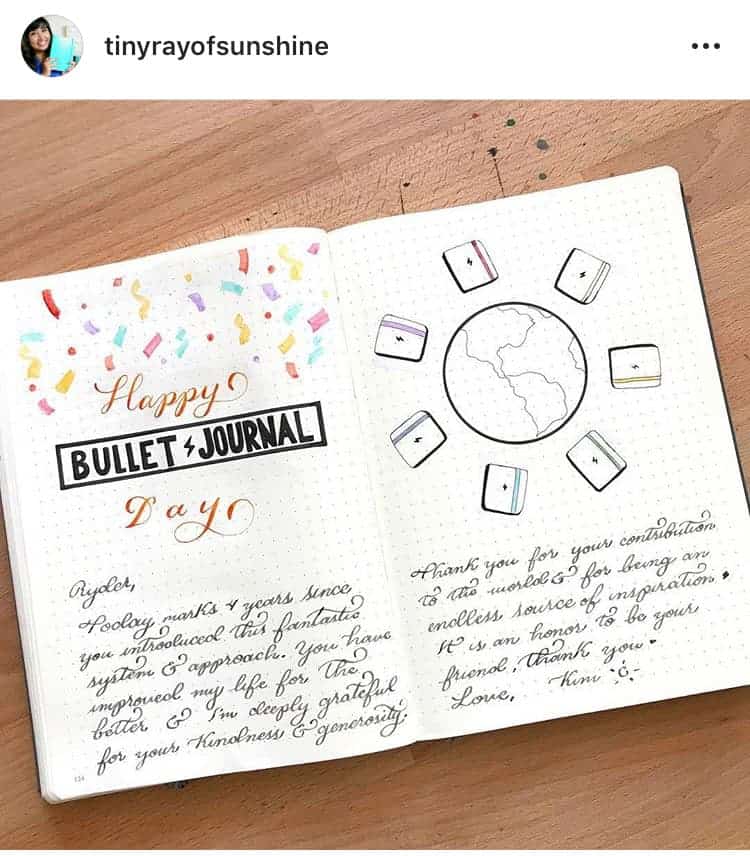 tinyrayofsunshine
Happy
BULLET JOURNAL
Day
Ryder,
Today marks 4 years since
you introduced this fantastic
system & approach. You have
improved my life for the
better & I'm deeply grateful
for your kindness & generosity.
134
Thank you for your contribution
to the world & for being an
endless source of inspiration.
It is an honor to be your
friend. Thank you.
Love, Kim